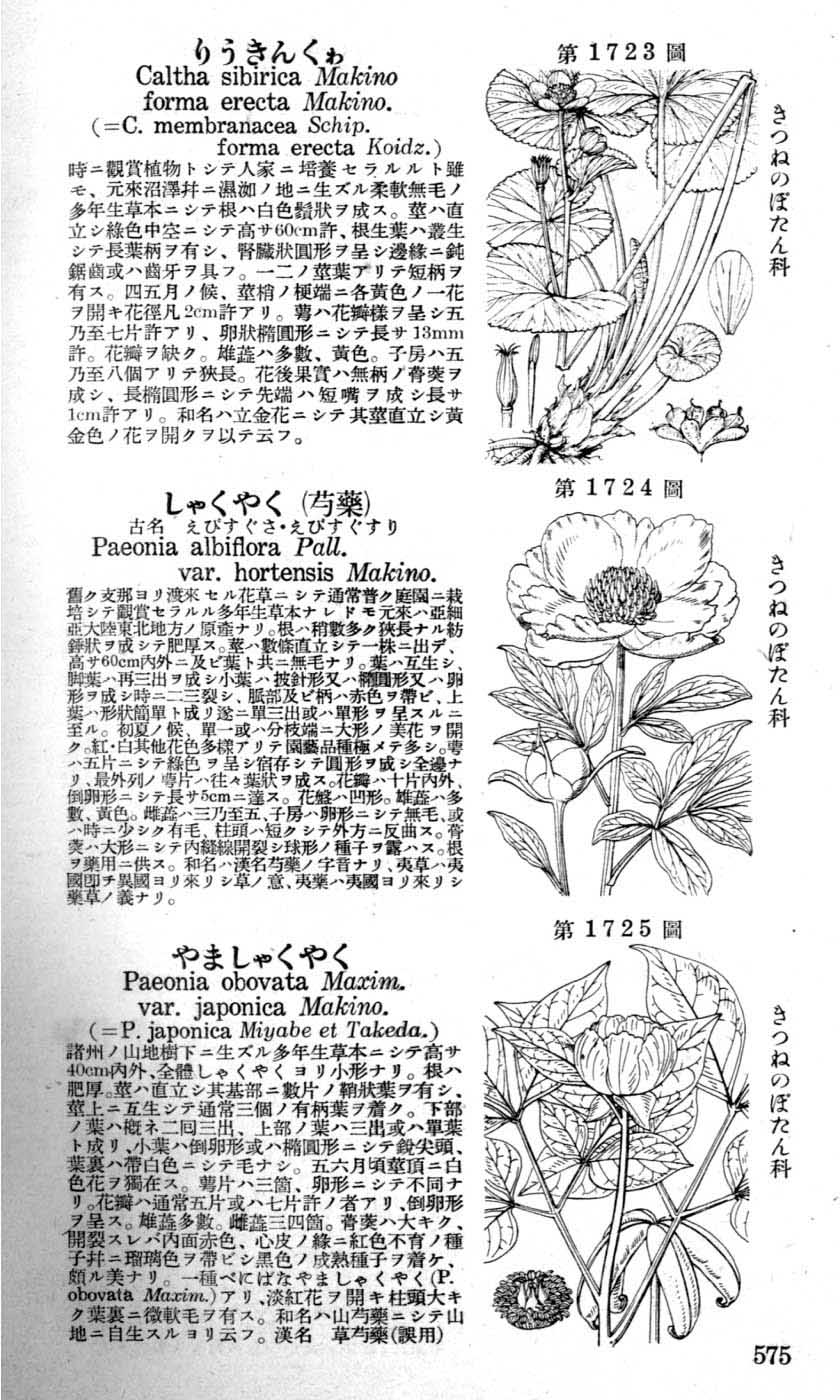 りうきんくゎ
Caltha sibirica Makino
forma erecta Makino.
(=C. membranacea Schip.
forma erecta Koidz.)
時ニ觀賞植物トシテ人家ニ培養セラルルト雖
モ、元來沼澤幷ニ濕洳ノ地ニ生ズル柔軟無毛ノ
多年生草本ニシテ根ハ白色鬚狀ヲ成ス。莖ハ直
立シ綠色中空ニシテ高サ60cm許、根生葉ハ叢生
シテ長葉柄ヲ有シ、腎臟狀圓形ヲ呈シ邊緣ニ鈍
鋸齒或ハ齒牙ヲ具フ。一二ノ莖葉アリテ短柄ヲ
有ス。四五月ノ候、莖梢ノ梗端ニ各黃色ノ一花
ヲ開キ花徑凡2cm許アリ。萼ハ花瓣樣ヲ呈シ五
乃至七片許アリ、卵狀橢圓形ニシテ長サ13mm
許。花瓣ヲ缺ク。雄蕋ハ多數、黃色。子房ハ五
乃至八個アリテ狹長。花後果實ハ無柄ノ蓇葖ヲ
成シ、長橢圓形ニシテ先端ハ短嘴ヲ成シ長サ
1cm許アリ。和名ハ立金花ニシテ其莖直立シ黃
金色ノ花ヲ開クヲ以テ云フ。
第1723圖
きつねのぼたん科
しゃくやく (芍藥)
古名 えびすぐさ・えびすぐすり
Paeonia albiflora Pall.
var. hortensis Makino.
舊ク支那ヨリ渡來セル花草ニシテ通常普ク庭園ニ栽
培シテ觀賞セラルル多年生草本ナレドモ元來ハ亞細
亞大陸東北地方ノ原產ナリ。根ハ稍數多ク狹長ナル紡
錘狀ヲ成シテ肥厚ス。莖ハ數條直立シテ一株ニ出デ、
高サ60cm內外ニ及ビ葉ト共ニ無毛ナリ。葉ハ互生シ、
脚葉ハ再三出ヲ成シ小葉ハ披針形又ハ橢圓形又ハ卵
形ヲ成シ時ニ二三裂シ、脈部及ビ柄ハ赤色ヲ帶ビ、上
葉ハ形狀簡單ト成リ遂ニ單三出或ハ單形ヲ呈スルニ
至ル。初夏ノ候、單一或ハ分枝端ニ大形ノ美花ヲ開
ク。紅・白其他花色多樣アリテ園藝品種極メテ多シ。萼
ハ五片ニシテ綠色ヲ呈シ宿存シテ圓形ヲ成シ全邊ナ
リ、最外列ノ萼片ハ往々葉狀ヲ成ス。花瓣ハ十片內外、
倒卵形ニシテ長サ5cmニ達ス。花盤ハ凹形。雄蕋ハ多
數、黃色。雌蕋ハ三乃至五、子房ハ卵形ニシテ無毛、或
ハ時ニ少シク有毛、柱頭ハ短クシテ外方ニ反曲ス。蓇
葖ハ大形ニシテ內縫線開裂シ球形ノ種子ヲ露ハス。根
ヲ藥用ニ供ス。和名ハ漢名芍藥ノ字音ナリ、夷草ハ夷
國卽チ異國ヨリ來リシ草ノ意、夷藥ハ夷國ヨリ來リシ
藥草ノ義ナリ。
第1724圖
きつねのぼたん科
やましゃくやく
Paeonia obovata Maxim.
var. japonica Makino.
(=P. japonica Miyabe et Takeda.)
諸州ノ山地樹下ニ生ズル多年生草本ニシテ高サ
40cm內外、全體しゃくやくヨリ小形ナリ。根ハ
肥厚。莖ハ直立シ其基部ニ數片ノ鞘狀葉ヲ有シ、
莖上ニ互生シテ通常三個ノ有柄葉ヲ着ク。下部
ノ葉ハ槪ネ二回三出、上部ノ葉ハ三出或ハ單葉
ト成リ、小葉ハ倒卵形或ハ橢圓形ニシテ銳尖頭、
葉裏ハ帶白色ニシテ毛ナシ。五六月頃莖頂ニ白
色花ヲ獨在ス。萼片ハ三箇、卵形ニシテ不同ナ
リ。花瓣ハ通常五片或ハ七片許ノ者アリ、倒卵形
ヲ呈ス。雄蕋多數。雌蕋三四箇。蓇葖ハ大キク、
開裂スレバ內面赤色、心皮ノ緣ニ紅色不育ノ種
子幷ニ瑠璃色ヲ帶ビシ黑色ノ成熟種子ヲ着ケ、
頗ル美ナリ。一種べにばなやましゃくやく(P.
obovata Maxim.)アリ、淡紅花ヲ開キ柱頭大キ
ク葉裏ニ微軟毛ヲ有ス。和名ハ山芍藥ニシテ山
地ニ自生スルヨリ云フ。漢名 草芍藥(誤用)
第1725圖
きつねのぼたん科
575